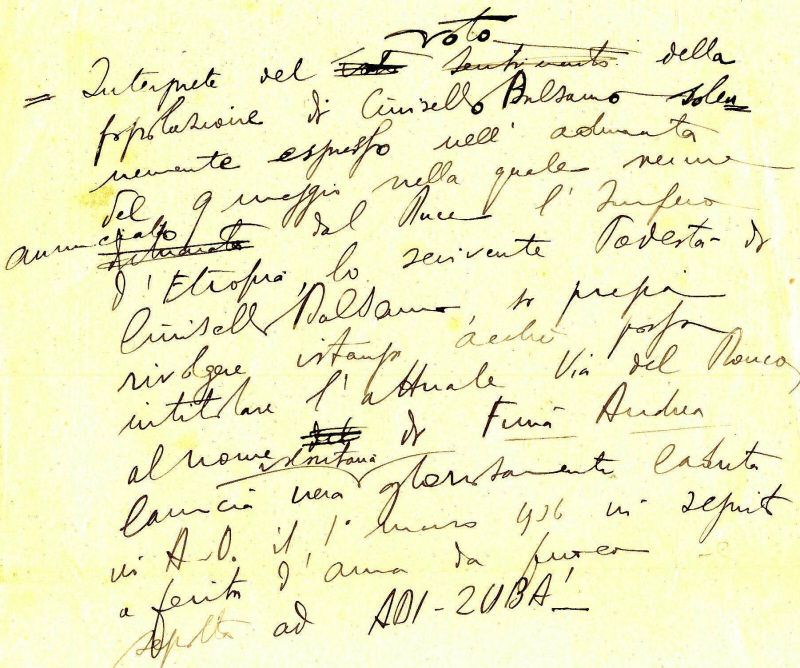 voto
= Interprete del voto sentimento della
popolazione di Cinisello Balsamo solen
nemente espresso nell' adunata
del 9 maggio nella quale venne
annunciato dal Duce l'Impero
d'Etiopia, lo scrivente Podestà di
Cinisello Balsamo, si pregia
rivolgere istanza acchè possa
intitolare l'attuale Via del Ronco
al nome di Fumà Andrea
volontaria
camicia nera gloriosamente caduta
in A.O. il 1° marzo 936 in seguito
a ferita d'arma da fuoco
sepolta ad ADI-ZUBA!